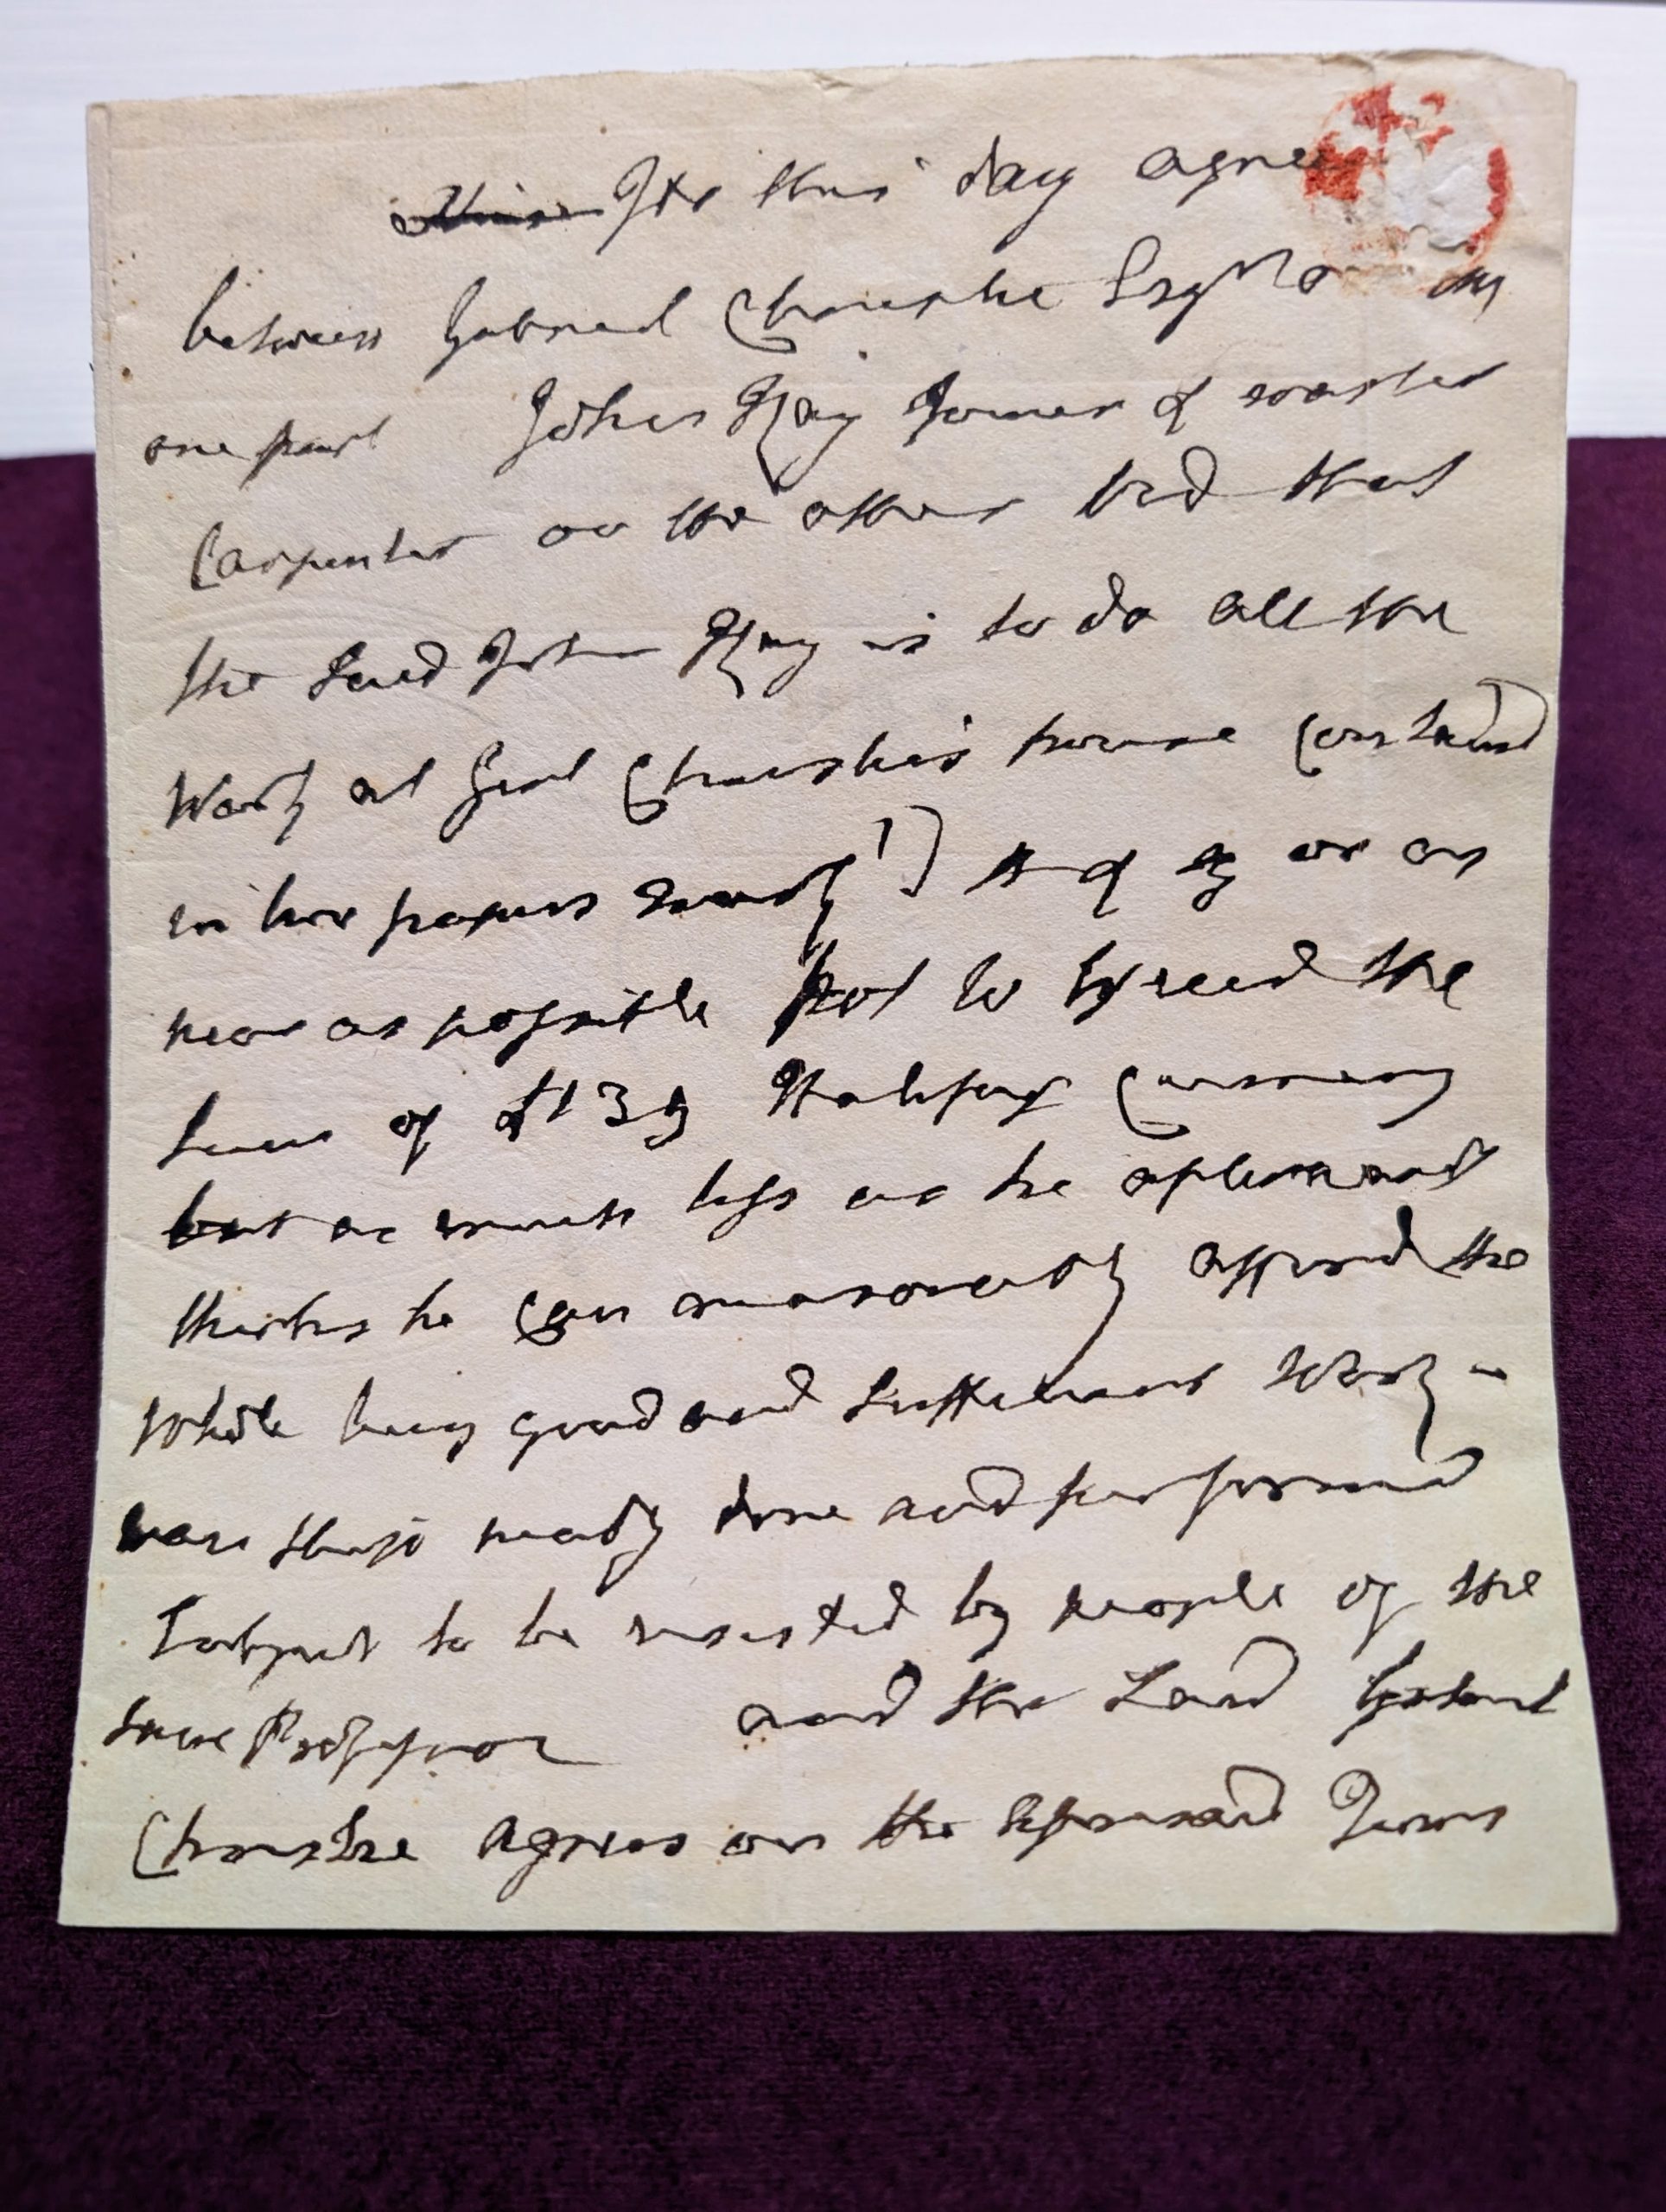 It is this day agree
between Gabriel Christie Esqr
one part John Hay Joiner & master
Carpenter on the other that
the Said John Hay is to do all the
Work at Genl Christie's house Contain'd
in his papers as
near as possible not to Exceed the
Sum of £135 Halifax Currency
but as much less as he afterwards
thinks he Can reasonably afford the
Whole being good and Sufficient Work
done and performed
Subject to be visited by people of the
same Profession and the Said Gabriel
Christie agrees on the aforesaid Terms